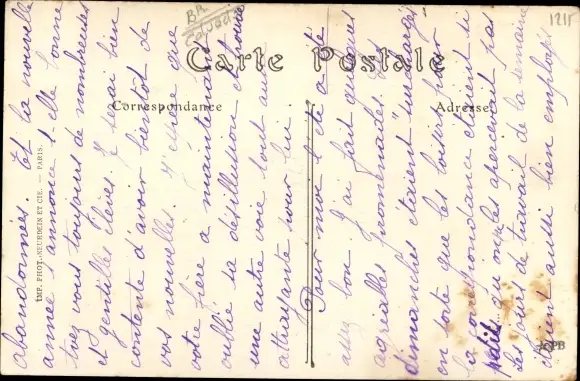 BR
1215
Carte Postale
Correspondance
Adresse
IMP. PHOT. NEURDEIN ET CIE. — PARIS.
abandonnées. Et la nouvelle
année s'annonce-t-elle bonne
avez vous toujours de nombreuses
et gentilles élèves. Je serai bien
contente d'avoir bientôt de
vos nouvelles. J'espère que
votre frère a maintenant
oublié sa désillusion et trouvé
une autre voie tout aussi
attrayante pour lui.
Pour moi l'été a été
assez bon. J'ai fait quelques
agréables promenades. Les
dimanches étaient surchargés
en sorte que les loisirs pour
la correspondance étaient si
petits qu'on ne les apercevait pas
Les jours de travail de la semaine
étaient aussi bien employés